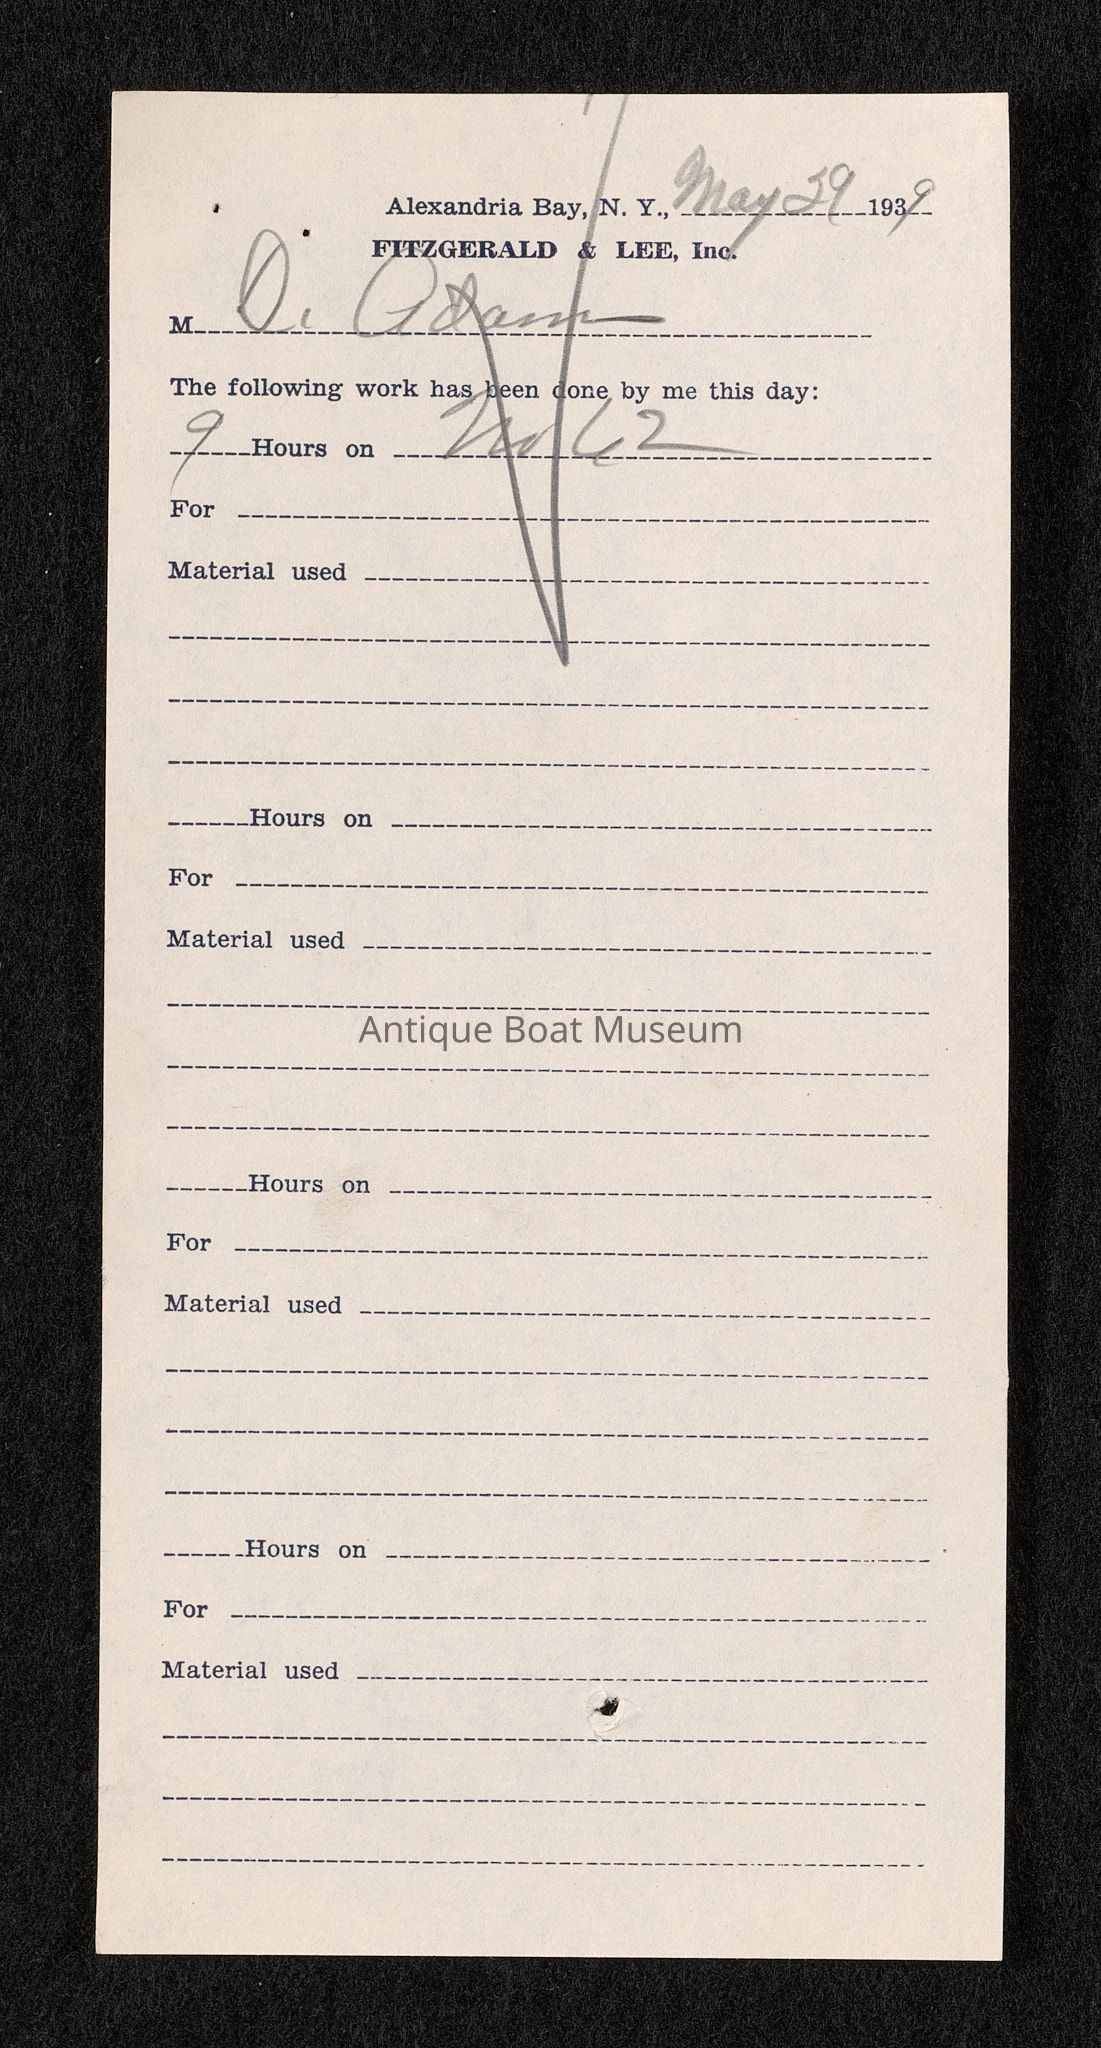 Alexandria Bay, N. Y., May 29 1939
FITZGERALD & LEE, Inc.
M D. Adams
The following work has been done by me this day:
9 Hours on No 62
For
Material used
Hours on
For
Material used
Antique Boat Museum
Hours on
For
Material used
Hours on
For
Material used